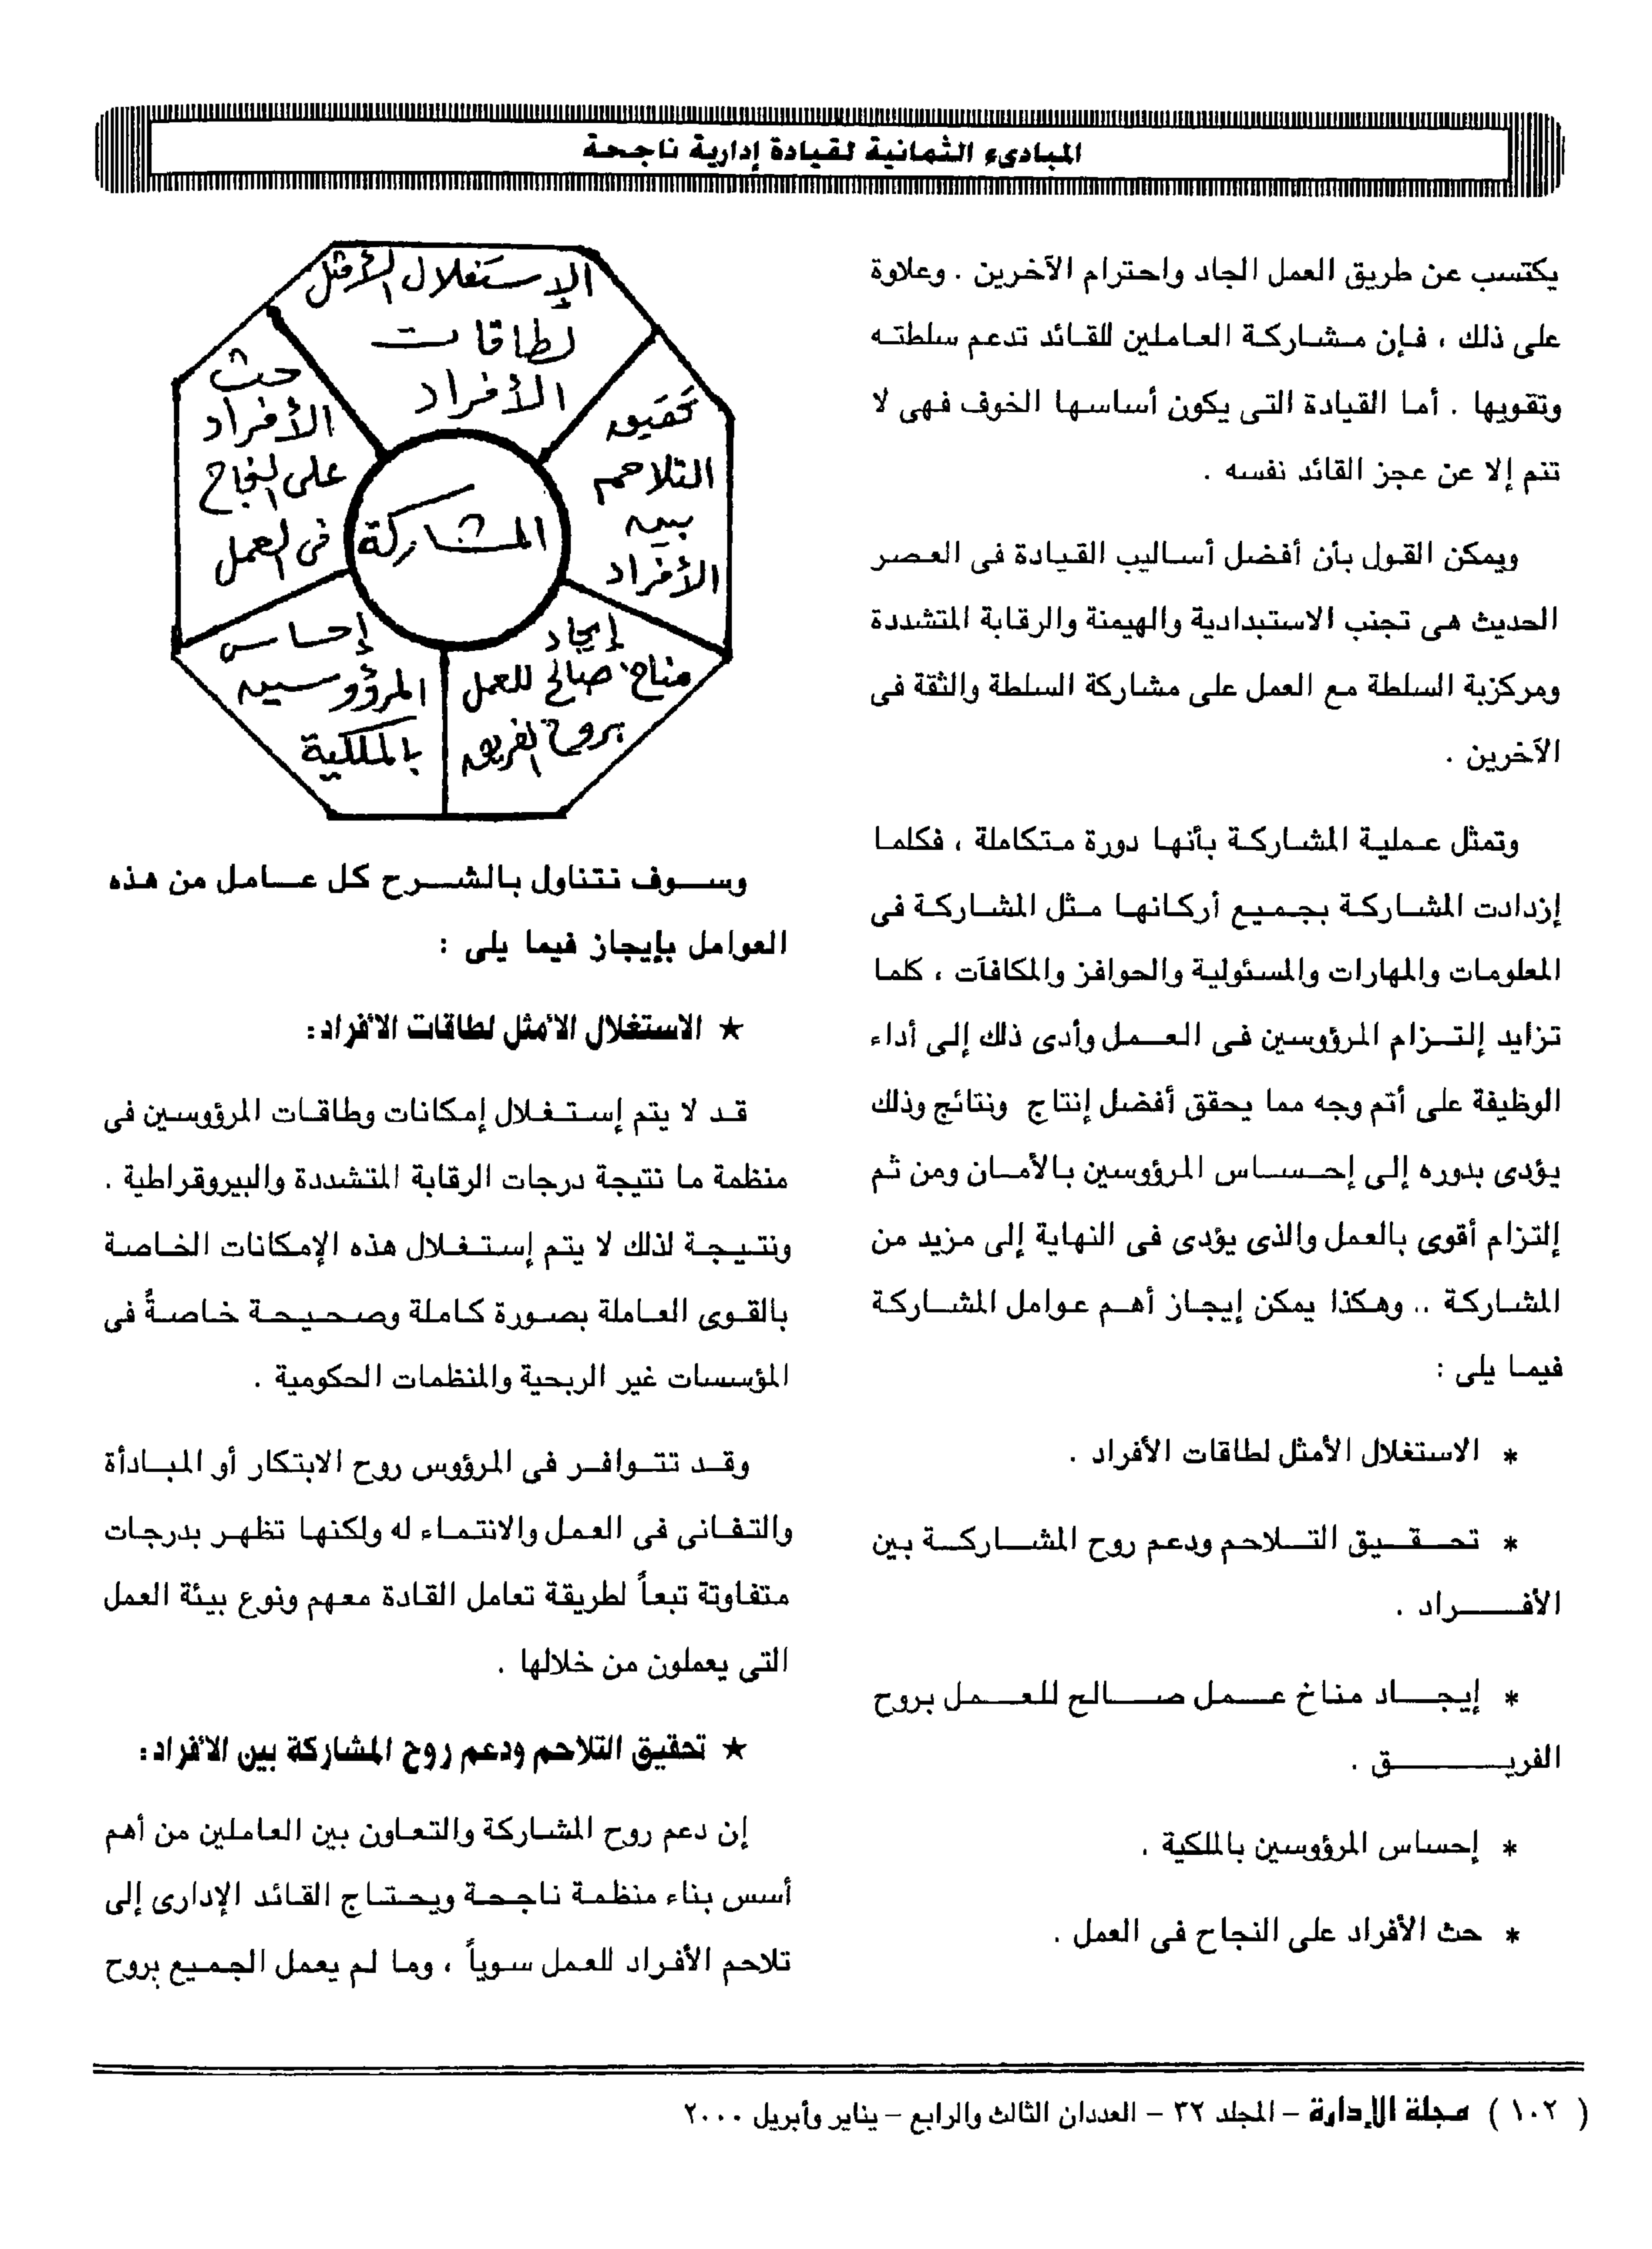 المبادىء الثمانية لقيادة إدارية ناجحة
يكتسب عن طريق العمل الجاد واحترام الآخرين . وعلاوة
على ذلك ، فإن مشاركة العاملين للقائد تدعم سلطته
وتقويها . أما القيادة التى يكون أساسها الخوف فهى لا
تنم إلا عن عجز القائد نفسه .
ويمكن القول بأن أفضل أساليب القيادة فى العصر
الحديث هى تجنب الاستبدادية والهيمنة والرقابة المتشددة
ومركزية السلطة مع العمل على مشاركة السلطة والثقة فى
الآخرين .
وتمثل عملية المشاركة بأنها دورة متكاملة ، فكلما
إزدادت المشاركة بجميع أركانها مثل المشاركة فى
المعلومات والمهارات والمسئولية والحوافز والمكافآت ، كلما
تزايد إلتزام المرؤوسين فى العمل وأدى ذلك إلى أداء
الوظيفة على أتم وجه مما يحقق أفضل إنتاج ونتائج وذلك
يؤدى بدوره إلى إحساس المرؤوسين بالأمان ومن ثم
إلتزام أقوى بالعمل والذى يؤدى فى النهاية إلى مزيد من
المشاركة .. وهكذا يمكن إيجاز أهم عوامل المشاركة
فيما يلى :
* الاستغلال الأمثل لطاقات الأفراد .
* تحقيق التلاحم ودعم روح المشاركة بين
الأفراد .
* إيجاد مناخ عمل صالح للعمل بروح
الفريق .
* إحساس المرؤوسين بالملكية .
* حث الأفراد على النجاح فى العمل .
الإستغلال الأمثل
لطاقات
الأفراد
تحقيق
التلاحم
بين
الأفراد
إيجاد
مناخ صالح للعمل
بروح الفريق
إحساس
المرؤوسين
بالملكية
حث
الأفراد
على النجاح
فى العمل
المشاركة
وسوف نتناول بالشرح كل عامل من هذه
العوامل بإيجاز فيما يلى :
★ الاستغلال الأمثل لطاقات الأفراد:
قد لا يتم إستغلال إمكانات وطاقات المرؤوسين فى
منظمة ما نتيجة درجات الرقابة المتشددة والبيروقراطية .
ونتيجة لذلك لا يتم إستغلال هذه الإمكانات الخاصة
بالقوى العاملة بصورة كاملة وصحيحة خاصةً فى
المؤسسات غير الربحية والمنظمات الحكومية .
وقد تتوافر فى المرؤوس روح الابتكار أو المبادأة
والتفانى فى العمل والانتماء له ولكنها تظهر بدرجات
متفاوتة تبعاً لطريقة تعامل القادة معهم ونوع بيئة العمل
التى يعملون من خلالها .
★ تحقيق التلاحم ودعم روح المشاركة بين الأفراد:
إن دعم روح المشاركة والتعاون بين العاملين من أهم
أسس بناء منظمة ناجحة ويحتاج القائد الإدارى إلى
تلاحم الأفراد للعمل سوياً ، وما لم يعمل الجميع بروح
( ١٠٢ ) مجلة الإدارة – المجلد ٣٢ – العددان الثالث والرابع – يناير وأبريل ٢٠٠٠